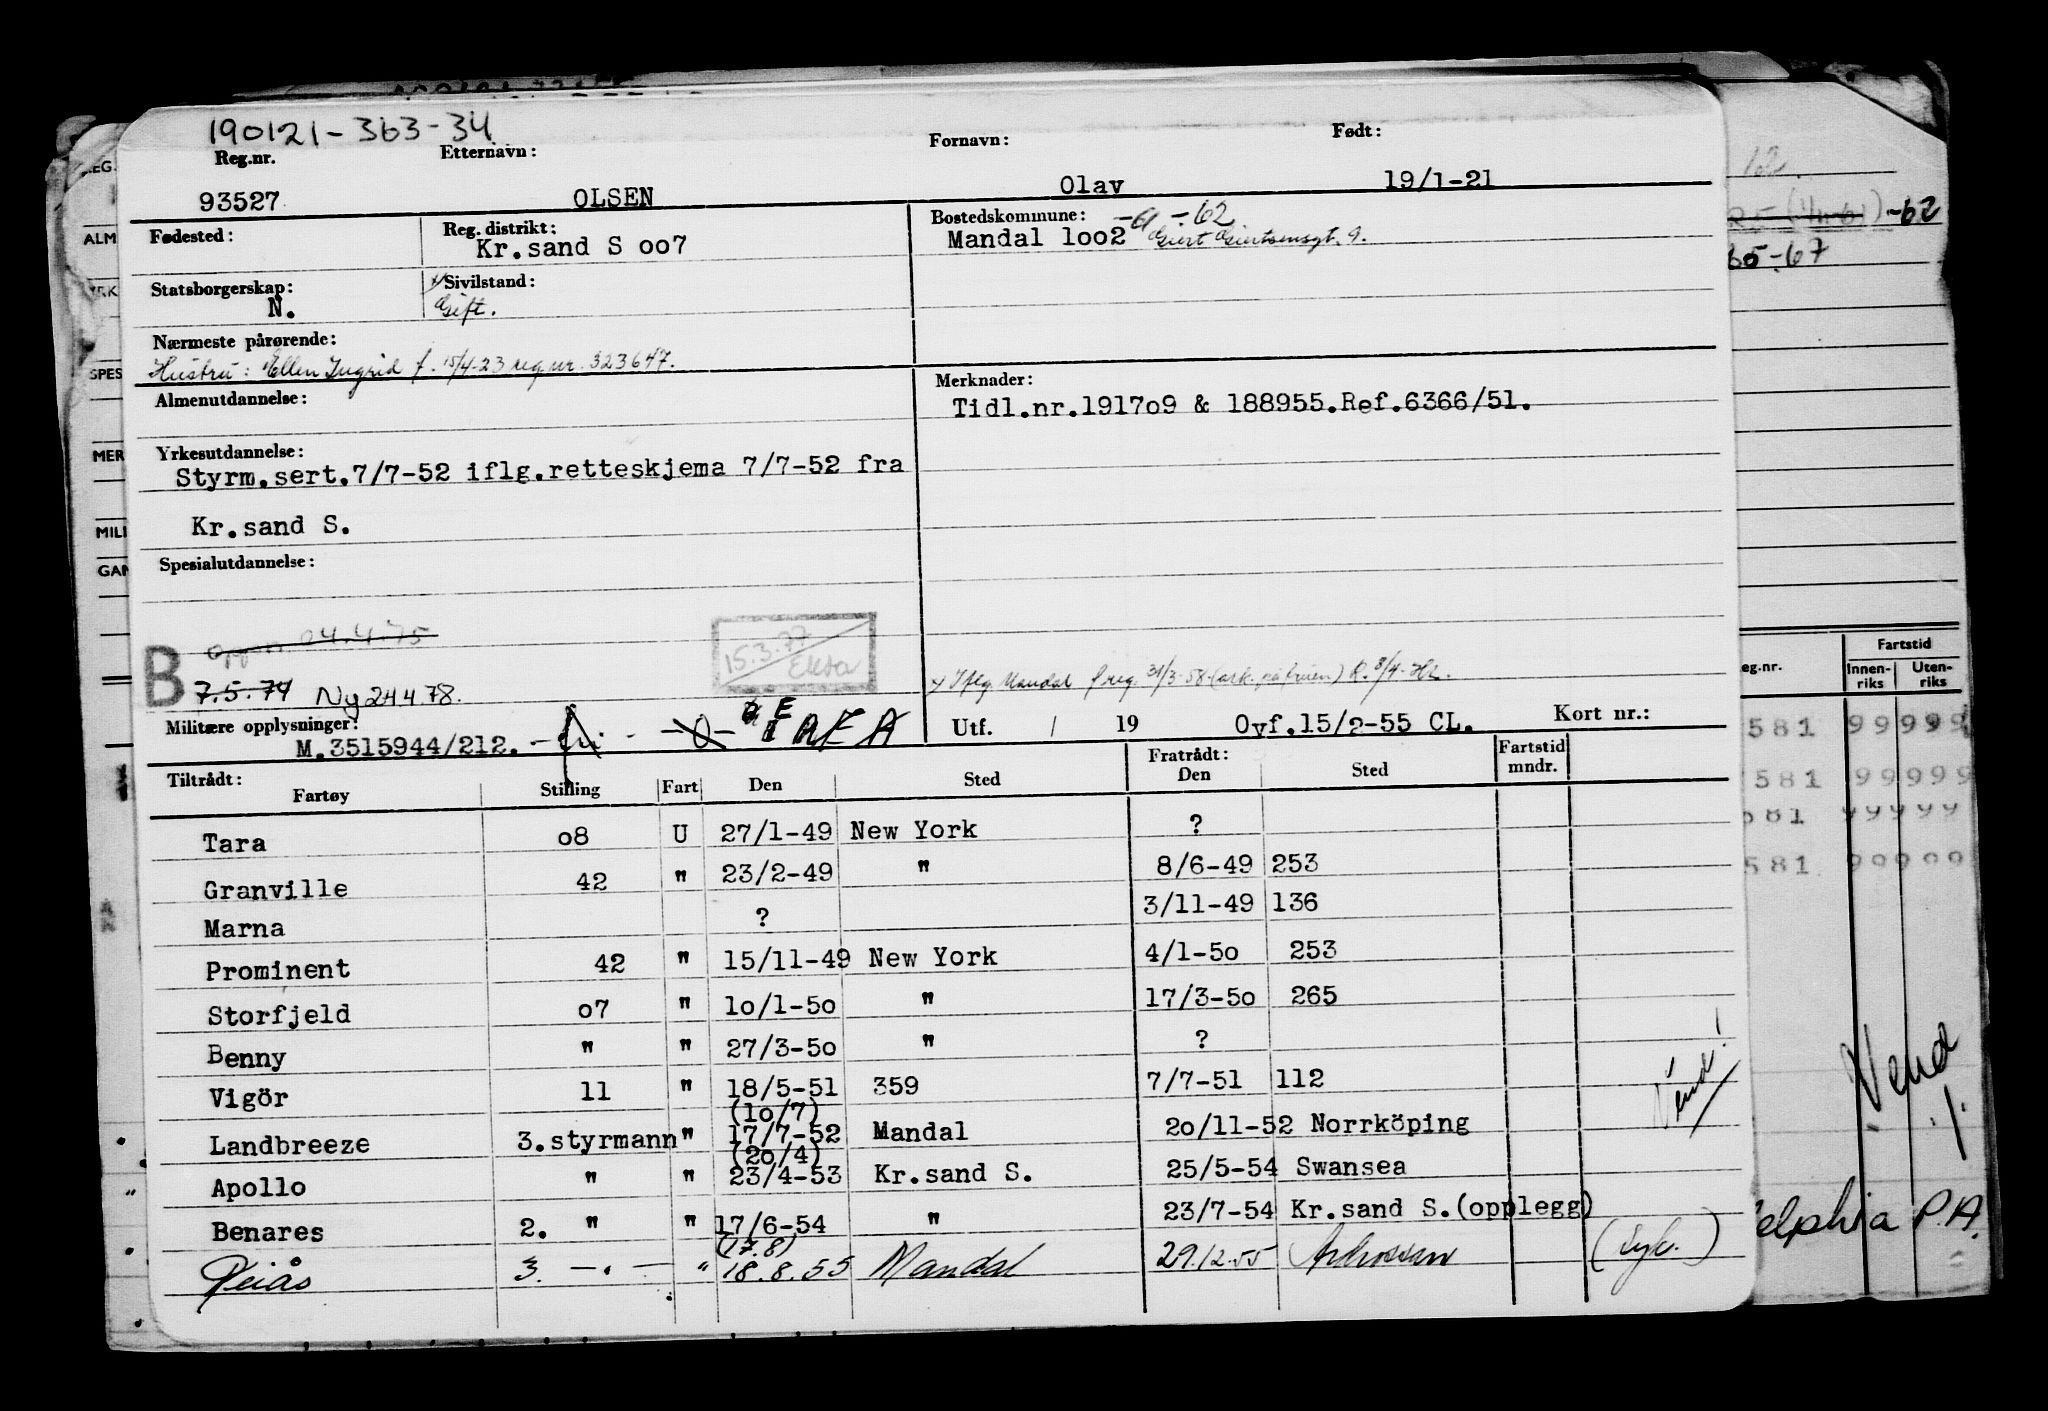 190121-363-34
Reg.nr. Etternavn: Fornavn: Født:
93527 OLSEN Olav 19/1-21
Fødested: Reg. distrikt: Bostedskommune:
Kr.sand S oo7 Mandal 1oo2 -62
Giert Giertsensgt. 9.
Statsborgerskap: Sivilstand:
N. Gift.
Nærmeste pårørende:
Hustru: Ellen Ingrid f. 15/4-23 reg nr. 323647.
Almenutdannelse: Merknader:
Tidl.nr.1917o9 & 188955.Ref.6366/51.
Yrkesutdannelse:
Styrm.sert.7/7-52 iflg.retteskjema 7/7-52 fra
Kr.sand S.
Spesialutdannelse:
04.4.75
15.3.77
B 7.5.74 Ny 24.4.78.
x Iflg. Mandal f reg. 31/3-58
Militære opplysninger: Utf. / 19 Ovf.15/2-55 CL. Kort nr.:
M.3515944/212.
Tiltrådt: Fratrådt: Fartstid
Fartøy Stilling Fart Den Sted Den Sted mndr.
Tara o8 U 27/1-49 New York ?
Granville 42 " 23/2-49 " 8/6-49 253
Marna ? 3/11-49 136
Prominent 42 " 15/11-49 New York 4/1-5o 253
Storfjeld o7 " 1o/1-5o " 17/3-5o 265
Benny " " 27/3-5o " ?
Vigör 11 " 18/5-51 359 7/7-51 112
(1o/7)
Landbreeze 3.styrmann " 17/7-52 Mandal 2o/11-52 Norrköping
(2o/4)
Apollo " " 23/4-53 Kr.sand S. 25/5-54 Swansea
Benares 2. " " 17/6-54 " 23/7-54 Kr.sand S.(opplegg)
(17.8)
Peiås 3. — " — " 18.8.55 Mandal 29.12.55 Ardrossan (syk.)
Vend!
62.
-62
65-67
Fartstid
eg.nr. Innen-riks Uten-riks
581 99999
581 99999
581 99999
581 99999
Vend
elphia P.A.
REG.
ALM
YRK
SPES
MER
MILI
GAN